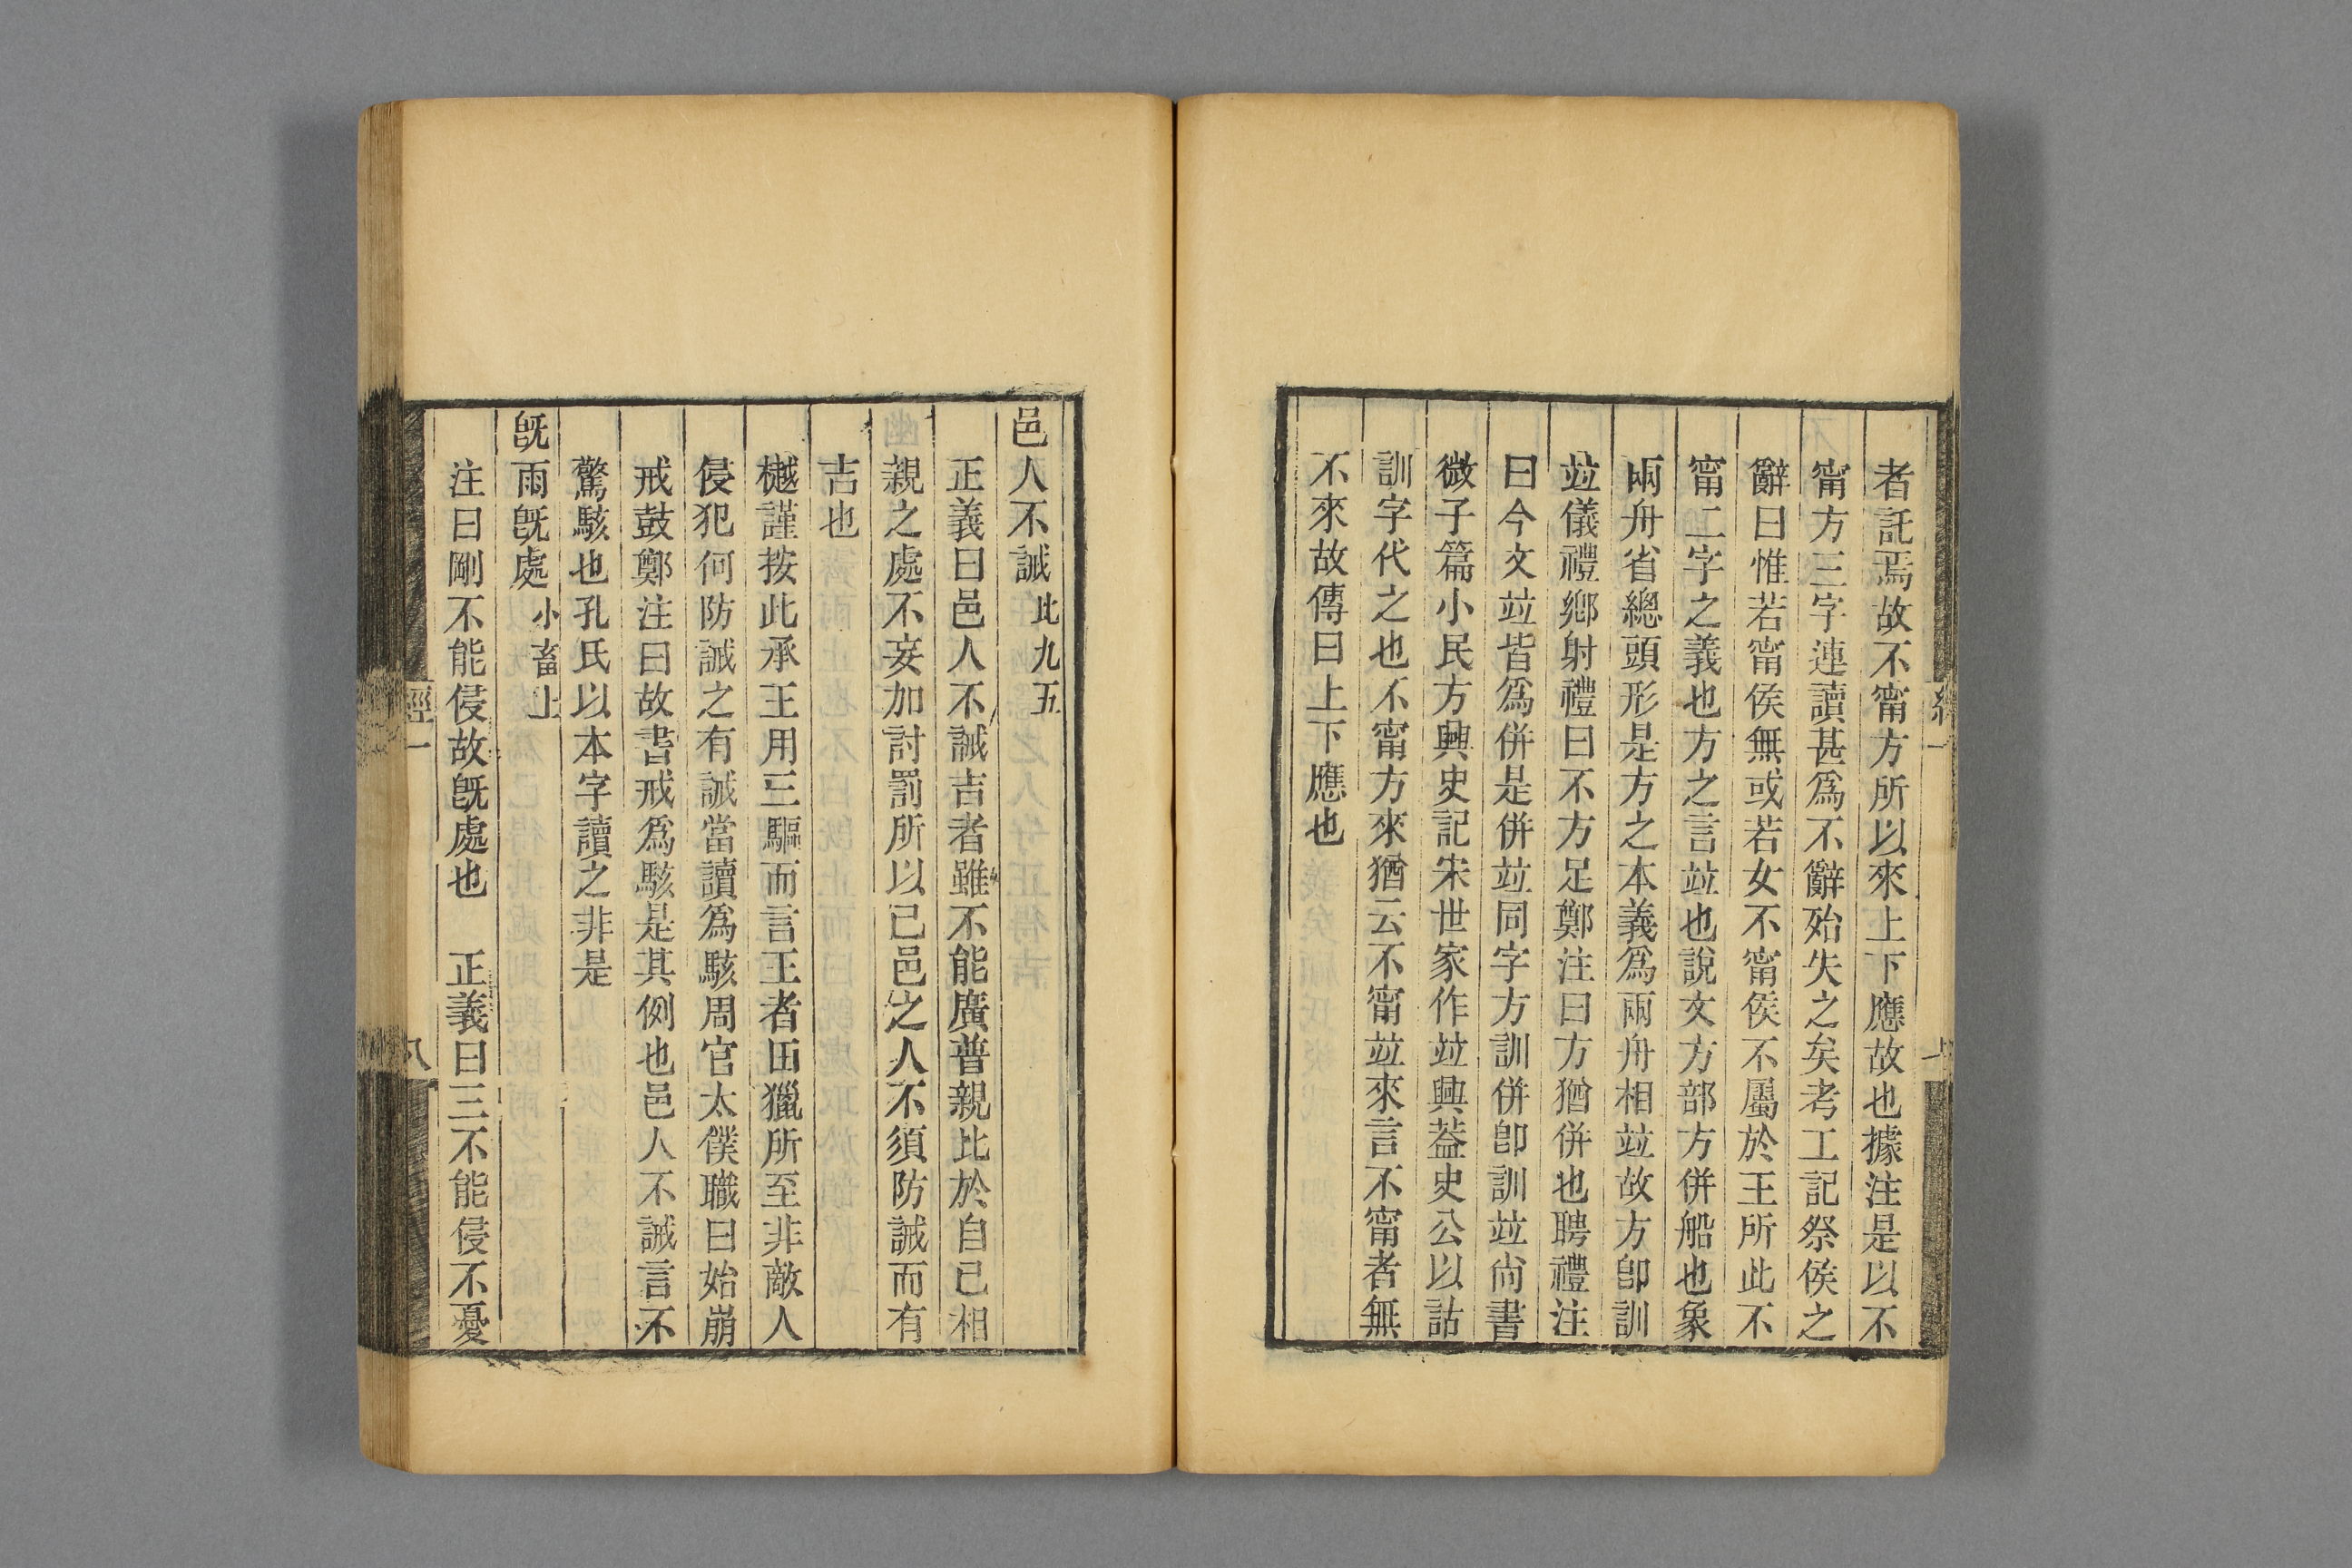 者託焉故不甯方所以來上下應故也據注是以不
甯方三字連讀甚爲不辭殆失之矣考工記祭侯之
辭曰惟若甯侯無或若女不甯侯不屬於王所此不
甯二字之義也方之言竝也說文方部方併船也象
兩舟省總頭形是方之本義爲兩舟相竝故方卽訓
竝儀禮鄉射禮曰不方足鄭注曰方猶併也聘禮注
曰今文竝皆爲併是併竝同字方訓併卽訓竝尙書
微子篇小民方興史記宋世家作竝興葢史公以詁
訓字代之也不甯方來猶云不甯竝來言不甯者無
不來故傳曰上下應也
邑人不誡 比九五
正義曰邑人不誡吉者雖不能廣普親比於自己相
親之處不妄加討罰所以己邑之人不須防誡而有
吉也
樾謹按此承王用三驅而言王者田獵所至非敵人
侵犯何防誡之有誡當讀爲駭周官太僕職曰始崩
戒鼓鄭注曰故書戒爲駭是其例也邑人不誡言不
驚駭也孔氏以本字讀之非是
旣雨旣處 小畜上
注曰剛不能侵故旣處也　正義曰三不能侵不憂
經一
八